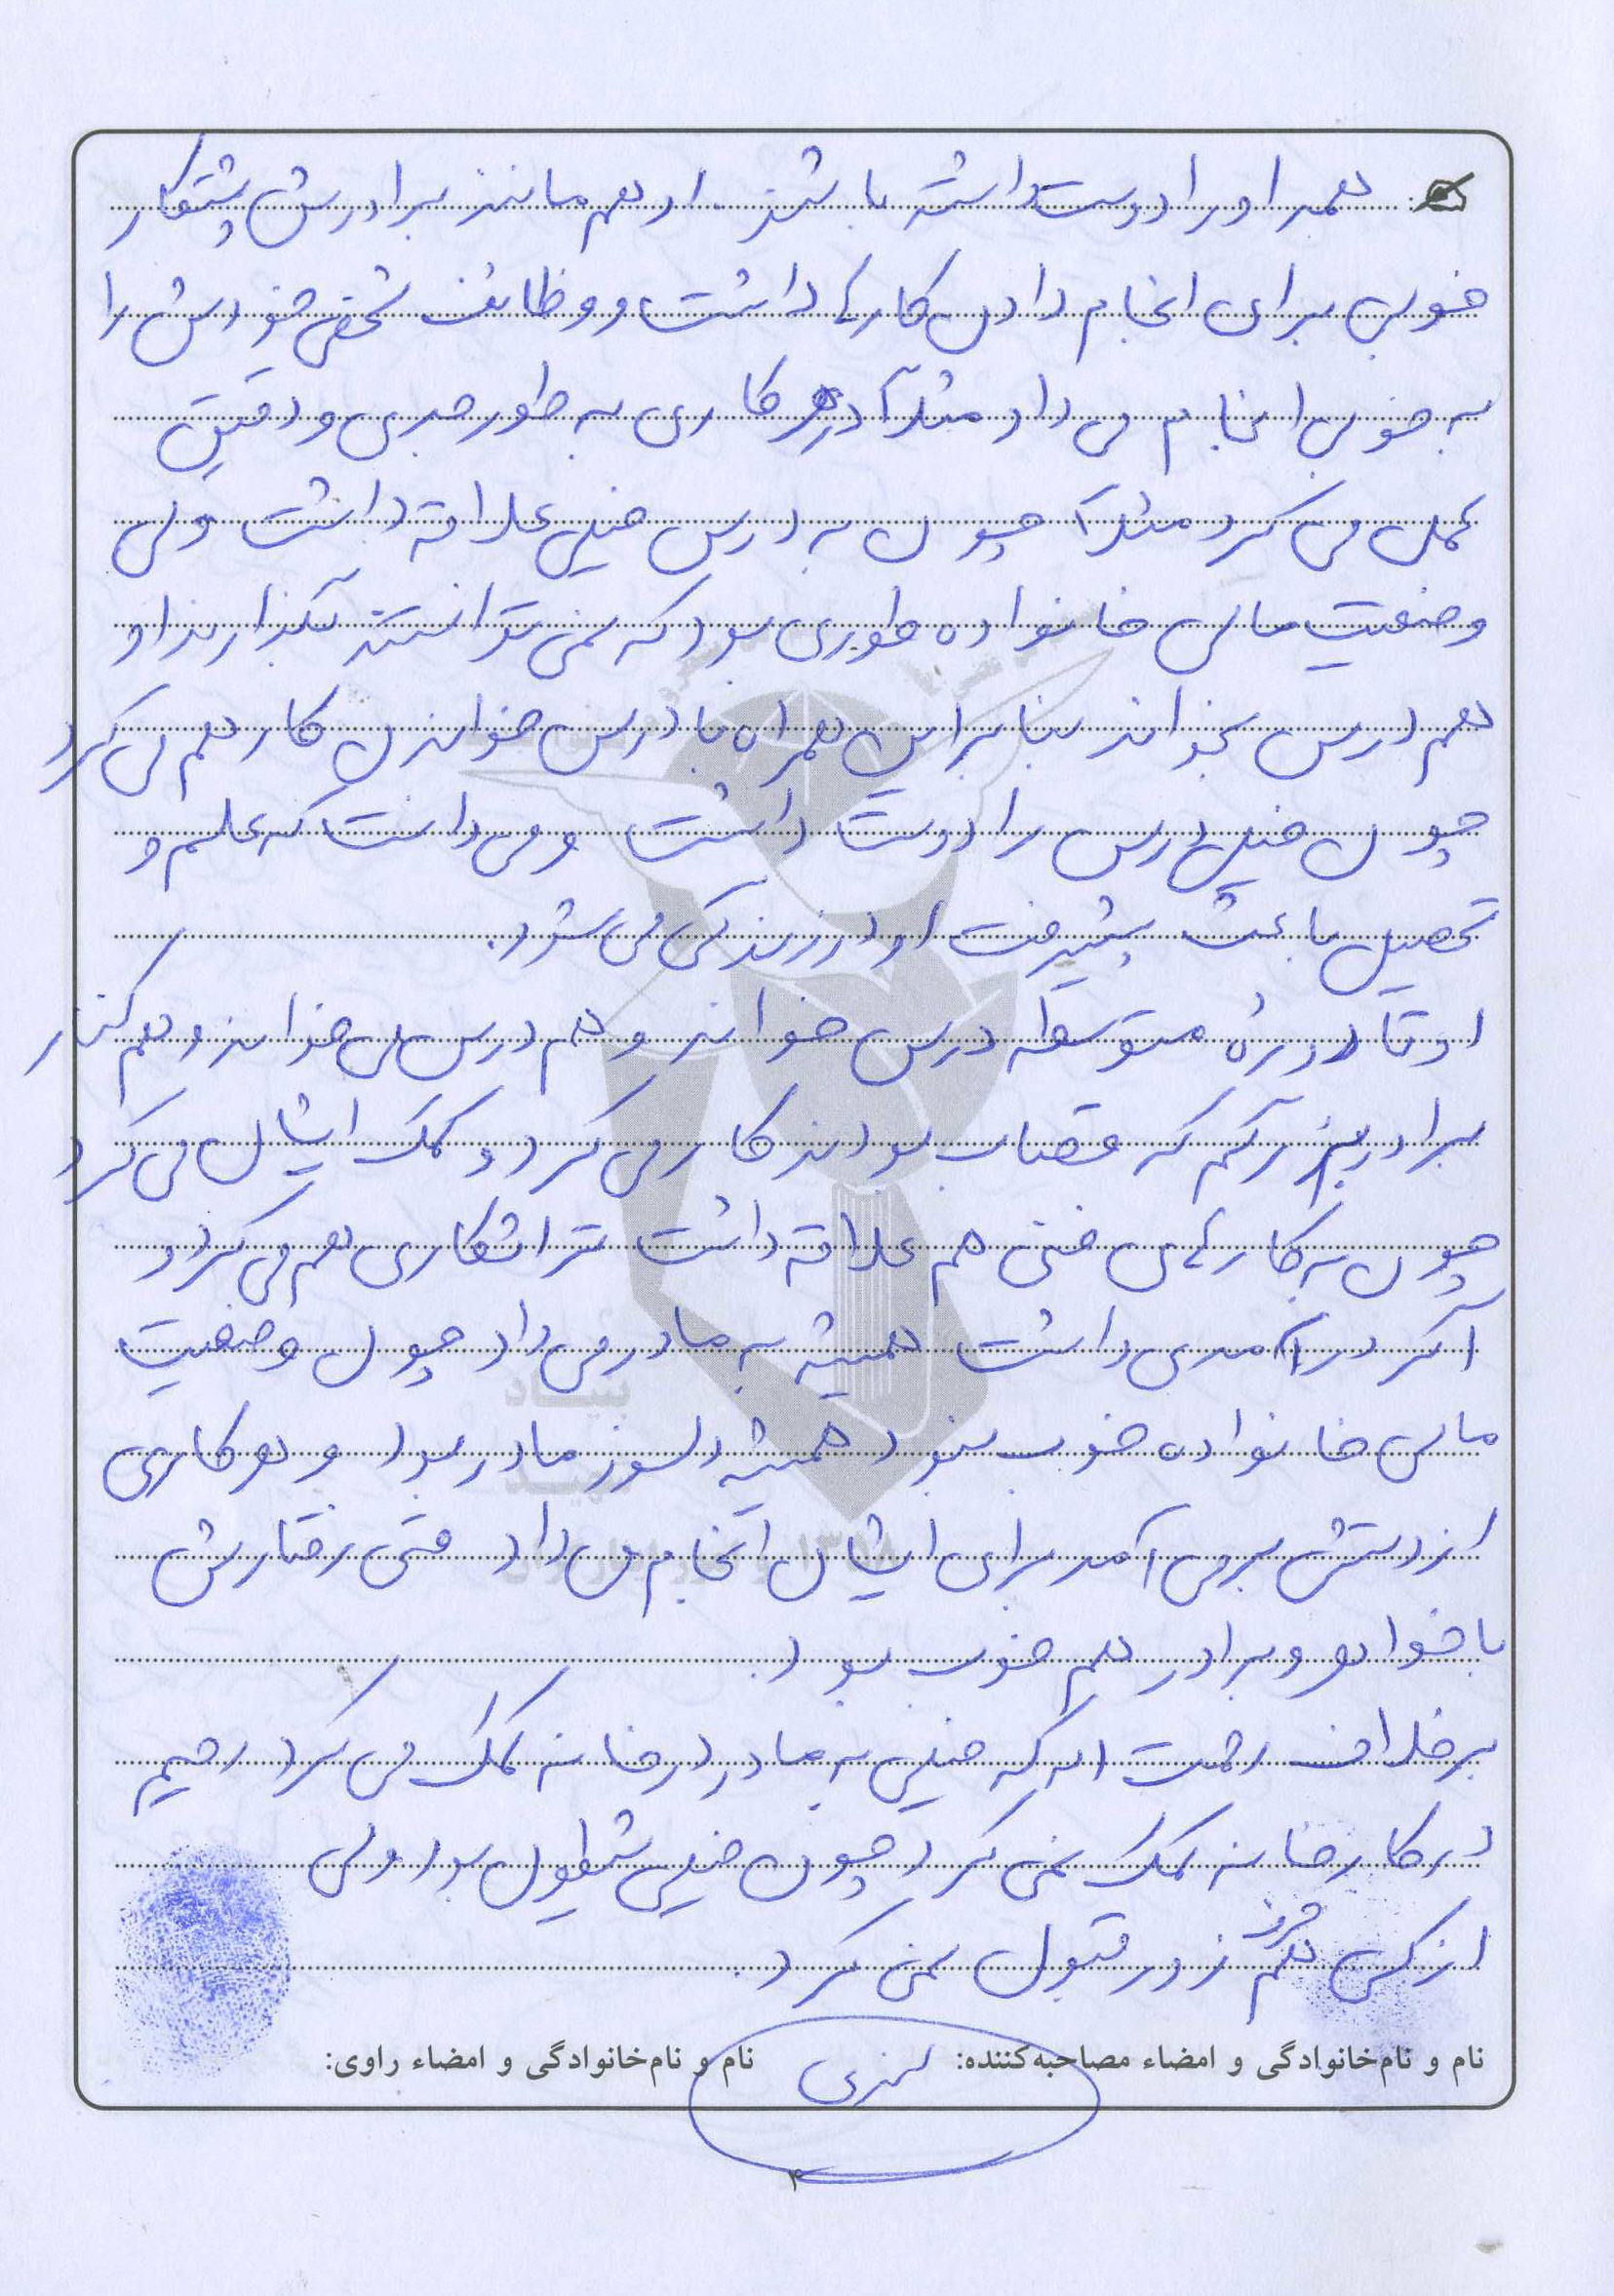 همه او را دوست داشته باشند. او هم مانند برادرش پشتکار
خوبی برای انجام دادن کارها داشت و وظائف شخصی خودش را
به خوبی انجام می داد مثلاً در هر کاری به طور جدی و دقیق
عمل می کرد مثلاً چون به درس خیلی علاقه داشت ولی
وضعیت مالی خانواده طوری بود که نمی توانستند بگذارند او
هم درس بخواند بنابراین همراه با درس خواندن کار هم می کرد
چون خیلی درس را دوست داشت و می دانست که علم و
تحصیل باعث پیشرفت او در زندگی می شود.
او تا دوره متوسطه درس خواند و هم درس می خواند و هم کنار
برادر بزرگم که قصاب بودند کار می کرد و کمک ایشان می کرد
چون به کارهای فنی هم علاقه داشت تراشکاری هم می کرد و
اگر درآمدی داشت همیشه به مادر می داد چون وضعیت
مالی خانواده خوب نبود همیشه دلسوز مادر بود و هر کاری
از دستش بر می آمد برای ایشان انجام می داد حتی رفتارش
با خواهر و برادر هم خوب بود.
بر خلاف رحمت اله که خیلی به مادر در خانه کمک می کرد رحیم
در کار خانه کمک نمی کرد چون خیلی شیطون بود ولی
از کسی هم حرف زور قبول نمی کرد.
نام و نام‌خانوادگی و امضاء مصاحبه‌کننده: نام و نام‌خانوادگی و امضاء راوی:
۴